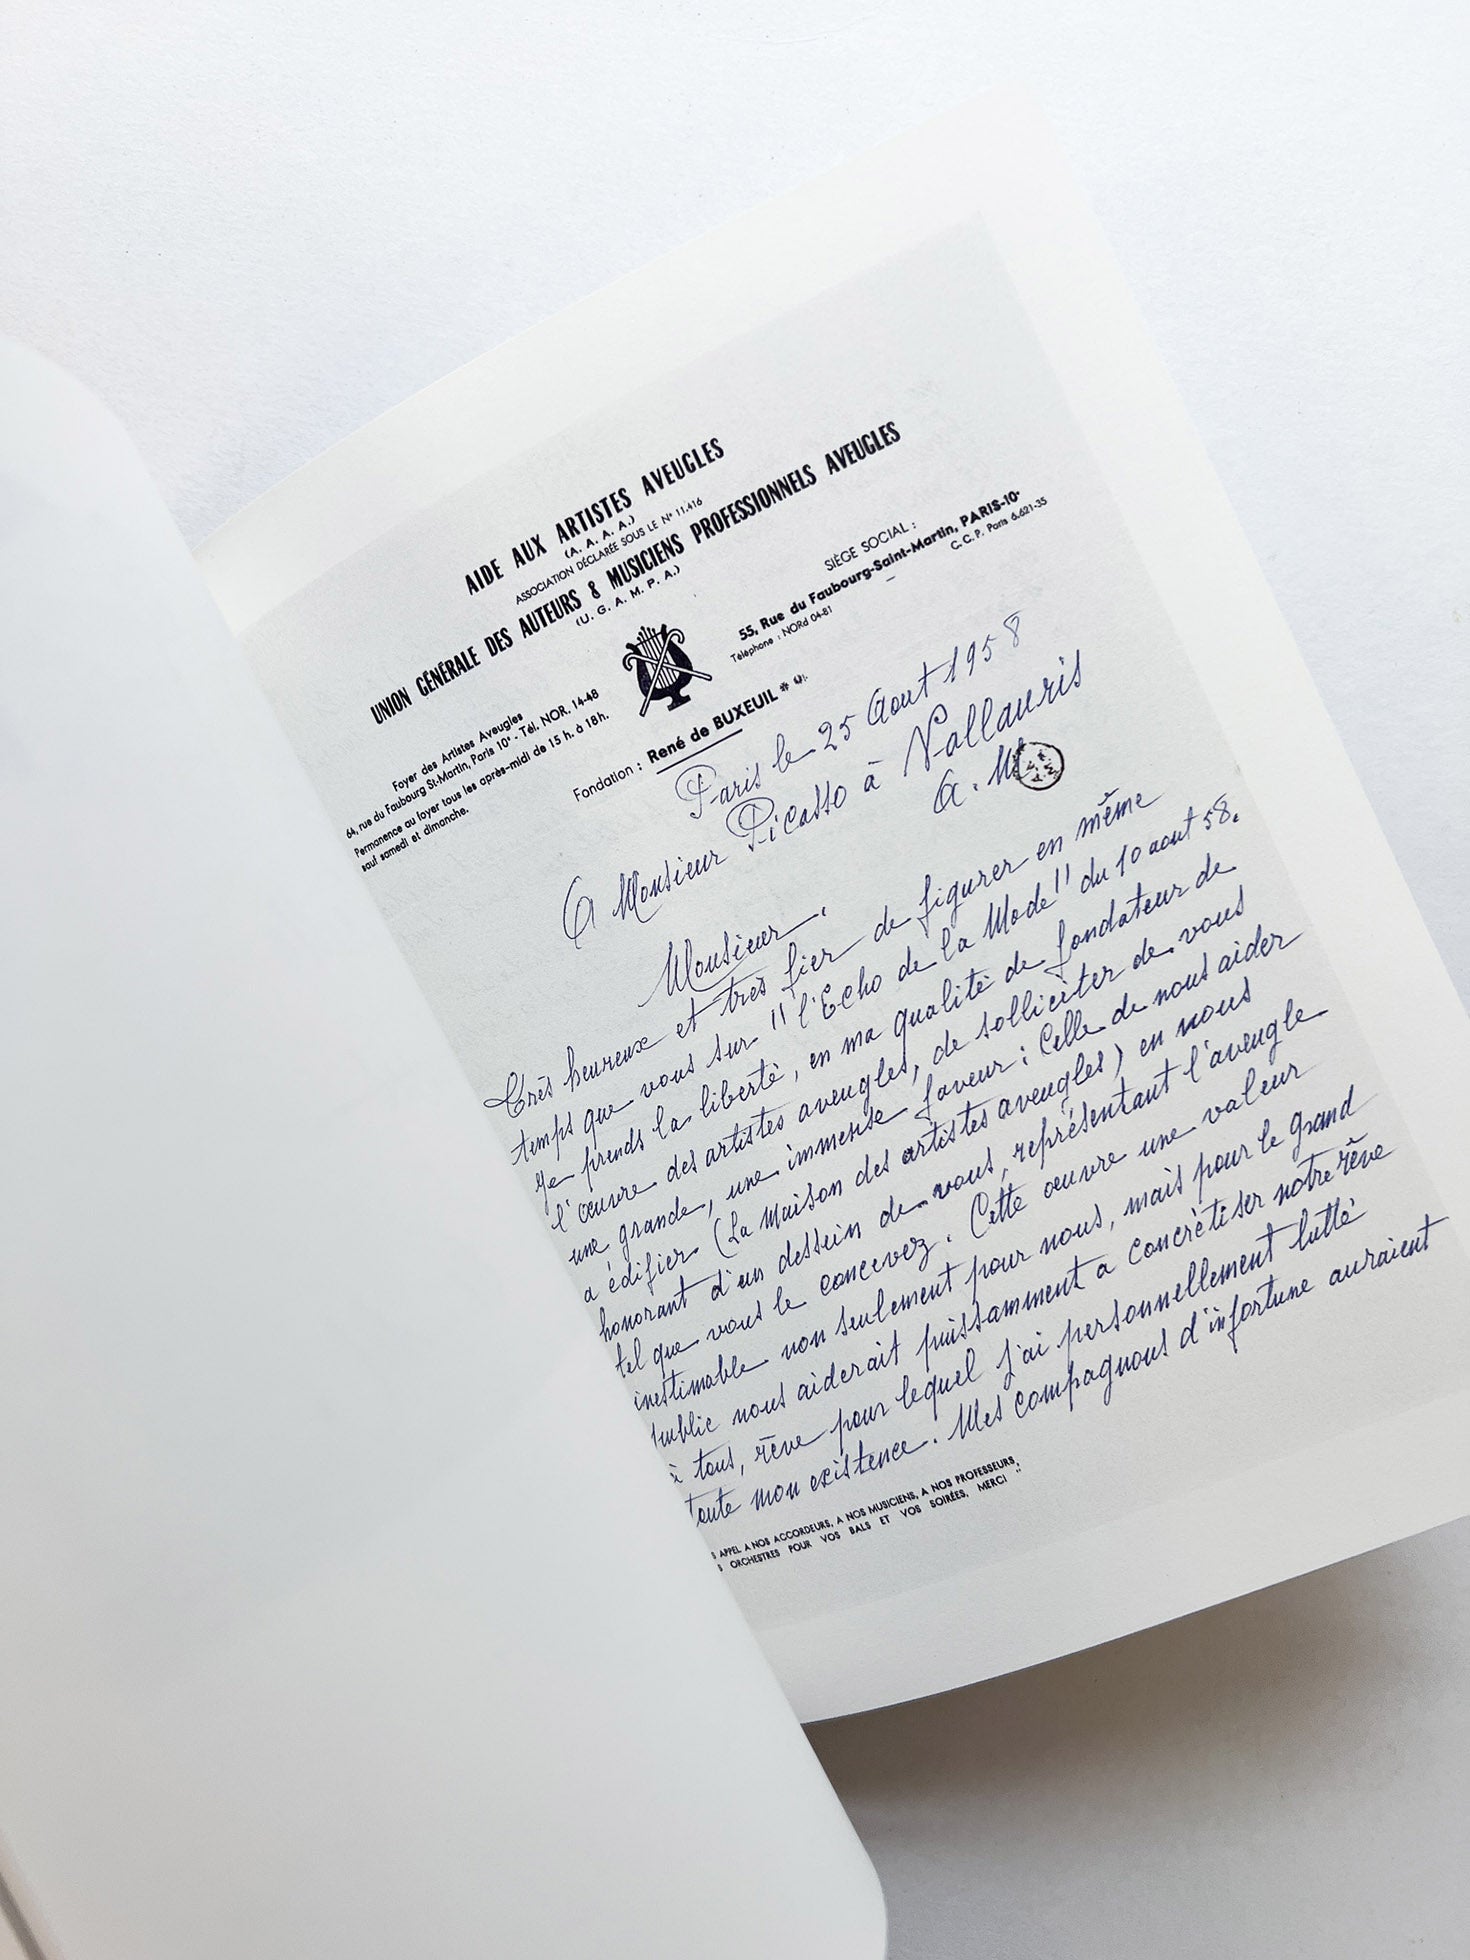 AIDE AUX ARTISTES AVEUGLES
(A. A. A. A.)
ASSOCIATION DÉCLARÉE SOUS LE N° 11.416
UNION GÉNÉRALE DES AUTEURS & MUSICIENS PROFESSIONNELS AVEUGLES
(U. G. A. M. P. A.)
Foyer des Artistes Aveugles
64, rue du Faubourg St-Martin, Paris 10e - Tél. NOR. 14-48
Permanence au foyer tous les après-midi de 15 h. à 18h.
sauf samedi et dimanche.
SIÈGE SOCIAL :
55, Rue du Faubourg-Saint-Martin, PARIS-10e
Téléphone : NORd 04-81
C.C.P. Paris 6.621-35
Fondation : René de BUXEUIL
Paris le 25 Aout 1958
A Monsieur Picasso à Vallauris
A. M.
Monsieur,
Très heureux et très fier de figurer en même
temps que vous sur "l'Echo de la Mode" du 10 aout 58.
Je prends la liberté, en ma qualité de fondateur de
l'œuvre des artistes aveugles, de solliciter de vous
une grande, une immense faveur : Celle de nous aider
a édifier (La Maison des artistes aveugles) en nous
honorant d'un dessein de vous, représentant l'aveugle
tel que vous le concevez. Cette œuvre une valeur
inestimable non seulement pour nous, mais pour le grand
public nous aiderait puissamment a concrètiser notre rêve
à tous, rêve pour lequel j'ai personnellement lutté
toute mon existence. Mes compagnons d'infortune auraient
APPEL A NOS ACCORDEURS, A NOS MUSICIENS, A NOS PROFESSEURS,
ORCHESTRES POUR VOS BALS ET VOS SOIRÉES, MERCI "